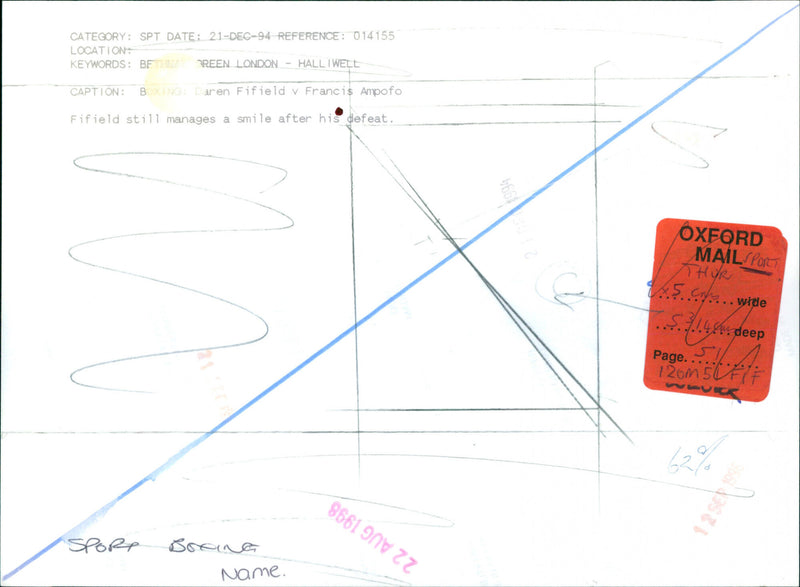 CATEGORY: SPT DATE: 21-DEC-94 REFERENCE: 014155
LOCATION:
KEYWORDS: BETHNAL GREEN LONDON - HALLIWELL
CAPTION: BOXING: Daren Fifield v Francis Ampofo
Fifield still manages a smile after his defeat.
OXFORD
MAIL SPORT
THUR
x5 cms wide
deep
Page 51
120m5 FIF
62%
12 SEP 1996
22 AUG 1998
SPORT BOXING
Name.